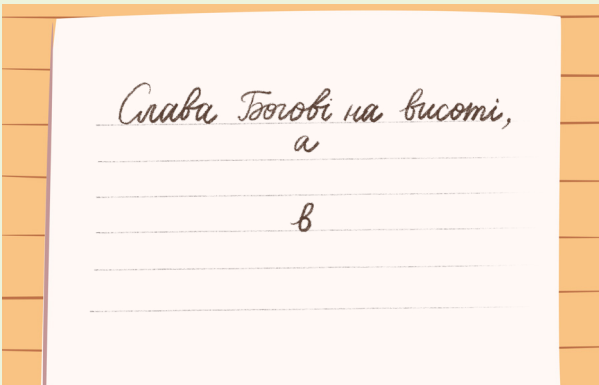 Слава Богові на висоті,
а
в